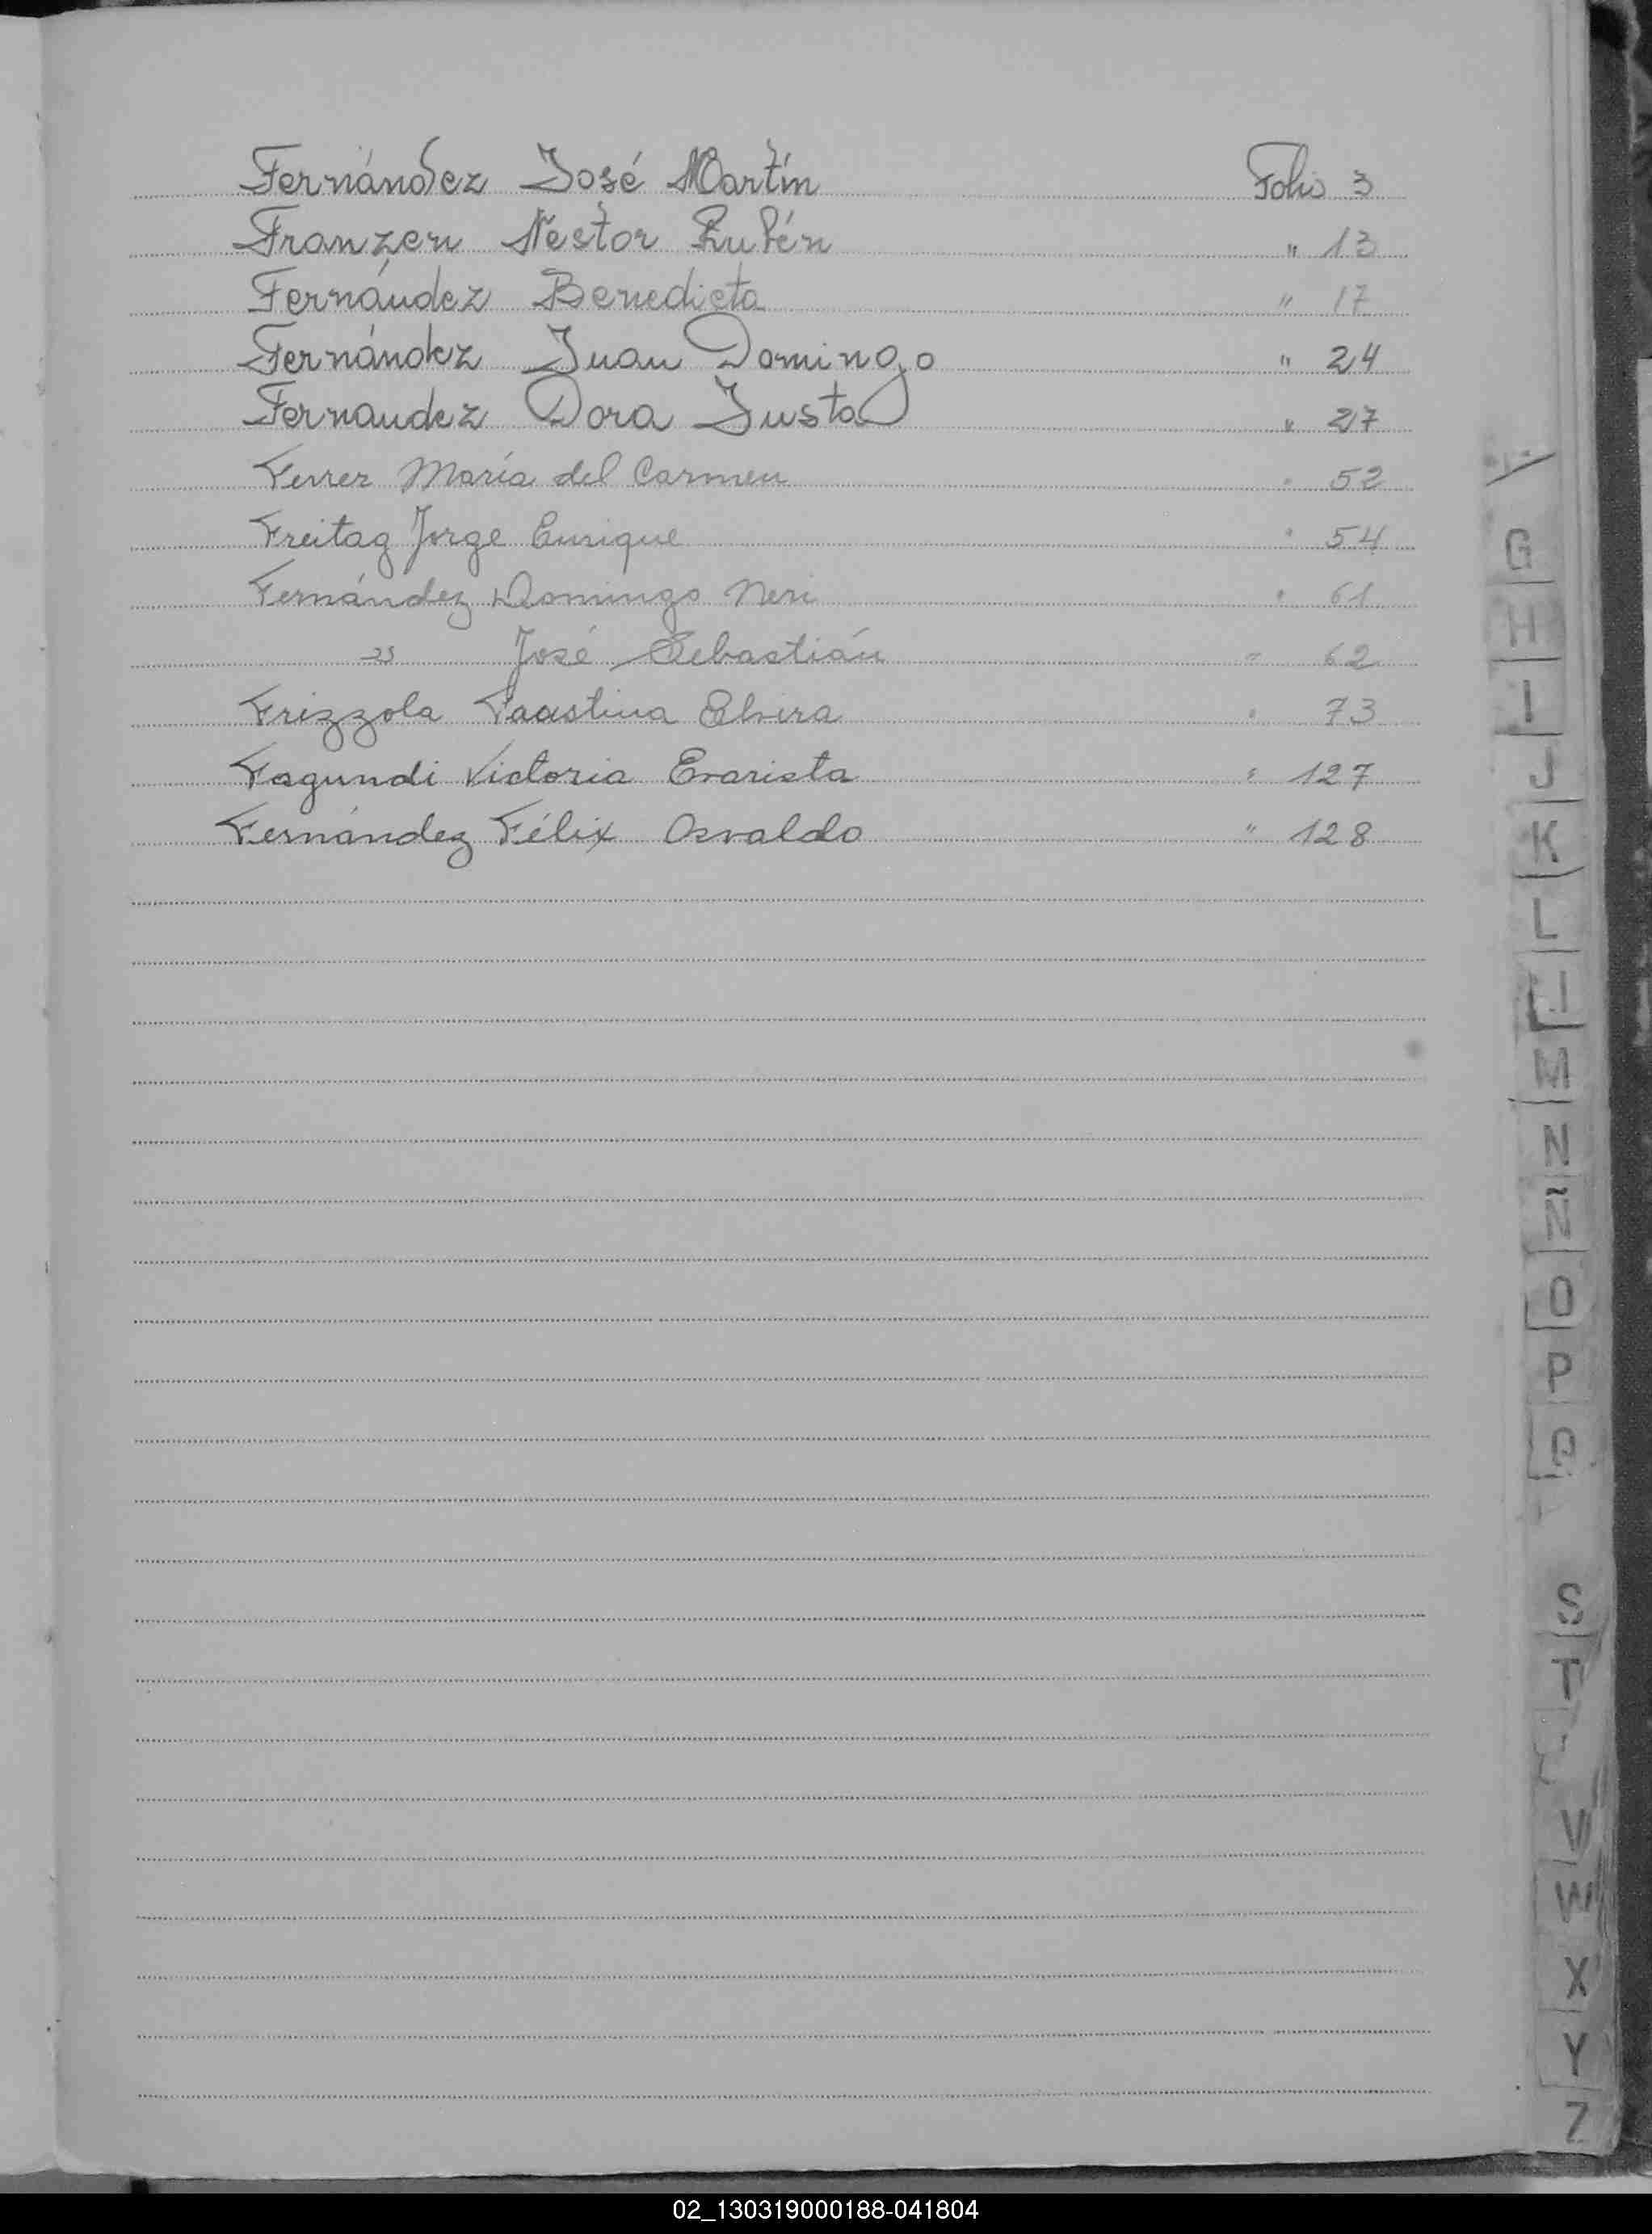 Fernández José Martín Folio 3
Franzen Néstor Rubén " 13
Fernández Benedicta " 17
Fernández Juan Domingo " 24
Fernandez Dora Justa " 27
Ferrer María del Carmen " 52
Freitag Jorge Enrique " 54
Fernández Domingo Neri " 61
" José Sebastián " 62
Frizzola Faustina Elvira " 73
Fagundi Victoria Evarista " 127
Fernández Félix Osvaldo " 128
G
H
I
J
K
L
M
N
Ñ
O
P
Q
S
T
V
W
X
Y
Z
02_130319000188-041804